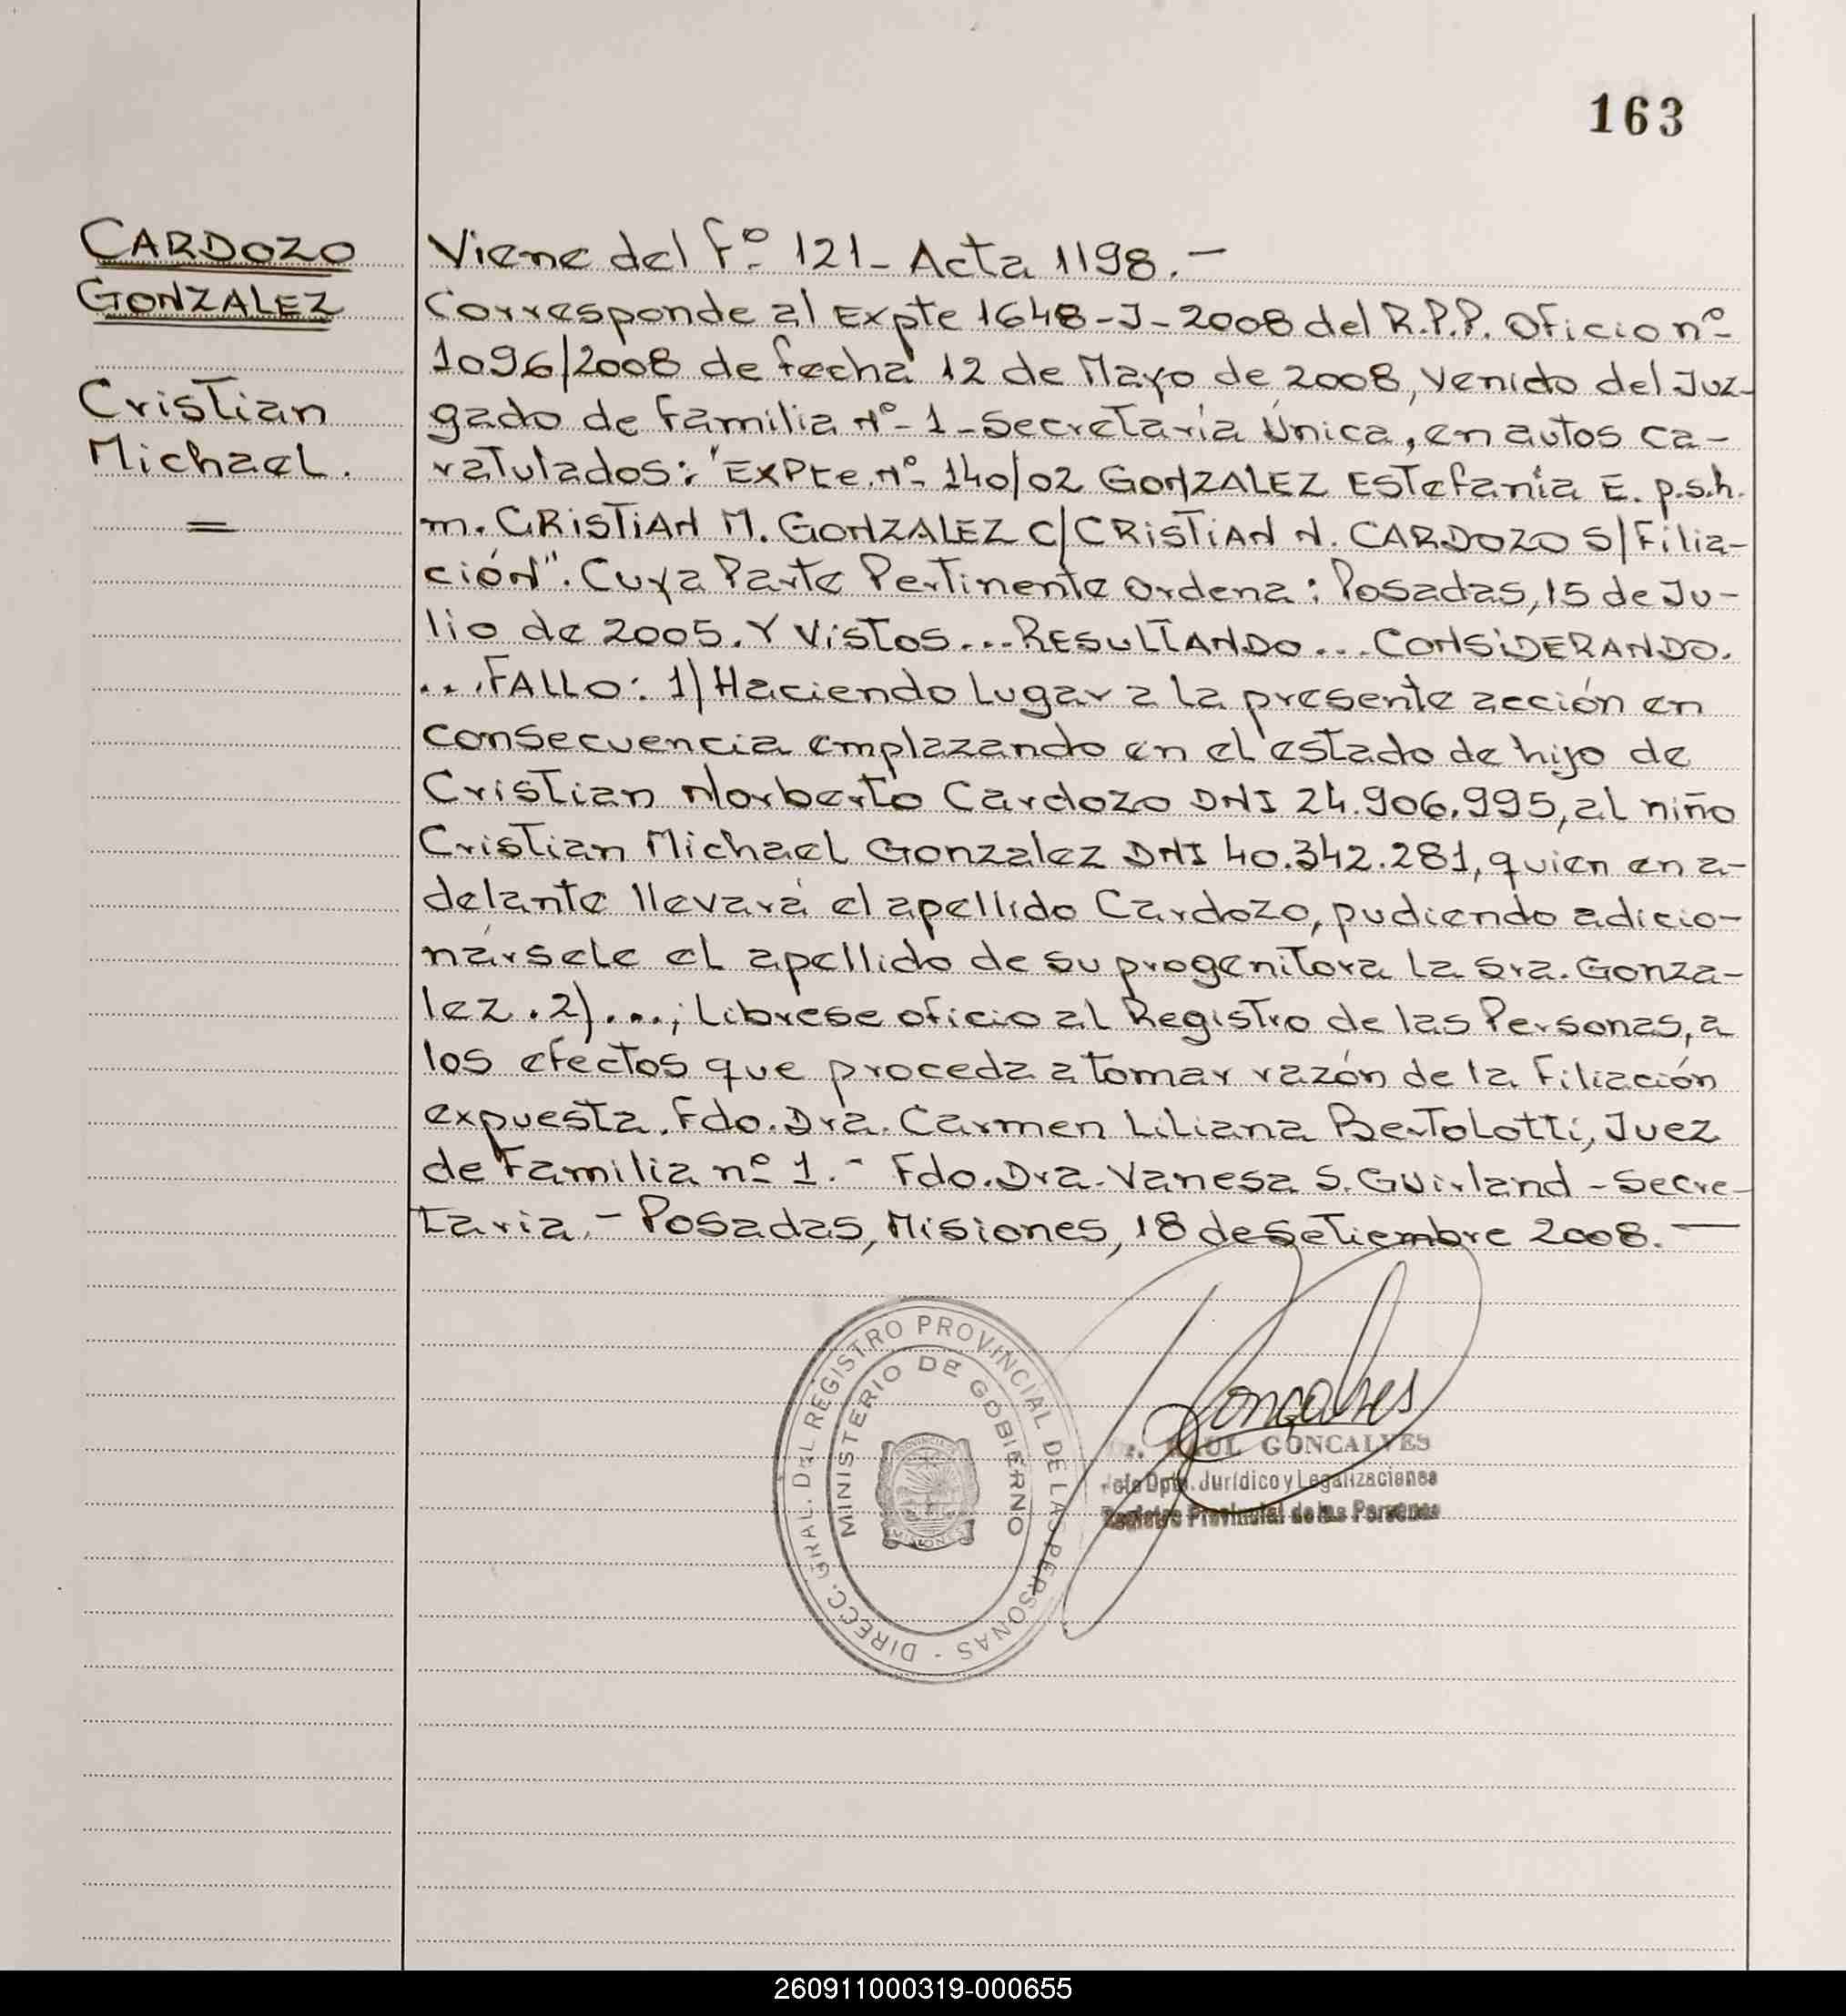 163
CARDOZO
GONZALEZ
Cristian
Michael.
Viene del Fº 121 - Acta 1198.-
Corresponde al Expte 1648-J-2008 del R.P.P. Oficio nº
1096/2008 de fecha 12 de Mayo de 2008, venido del Juz-
gado de Familia Nº 1 - Secretaría Única, en autos ca-
ratulados: "EXPte. Nº 140/02 GONZALEZ EStefanía E. p.s.h.
m. CRISTIAN M. GONZALEZ C/CRISTIAN N. CARDOZO S/Filia-
ción". Cuya Parte Pertinente Ordena: Posadas, 15 de Ju-
lio de 2005. Y VISTOS... RESULTANDO... CONSIDERANDO.
...FALLO: 1) Haciendo lugar a la presente acción en
consecuencia emplazando en el estado de hijo de
Cristian Norberto Cardozo DNI 24.906.995, al niño
Cristian Michael Gonzalez DNI 40.342.281, quien en a-
delante llevará el apellido Cardozo, pudiendo adicio-
nársele el apellido de su progenitora la Sra. Gonza-
lez. 2)...; Librese oficio al Registro de las Personas, a
los efectos que proceda a tomar razón de la Filiación
expuesta. Fdo. Dra. Carmen Liliana Bertolotti, Juez
de Familia nº 1.- Fdo. Dra. Vanesa S. Guirland - Secre-
taria.- Posadas, Misiones, 18 de Setiembre 2008.-
DIRECC. GRAL. DEL REGISTRO PROVINCIAL DE LAS PERSONAS -
MINISTERIO DE GOBIERNO
Goncalves
Dr. RAUL GONCALVES
Jefe Dpto. Jurídico y Legalizaciones
Registro Provincial de las Personas
260911000319-000655